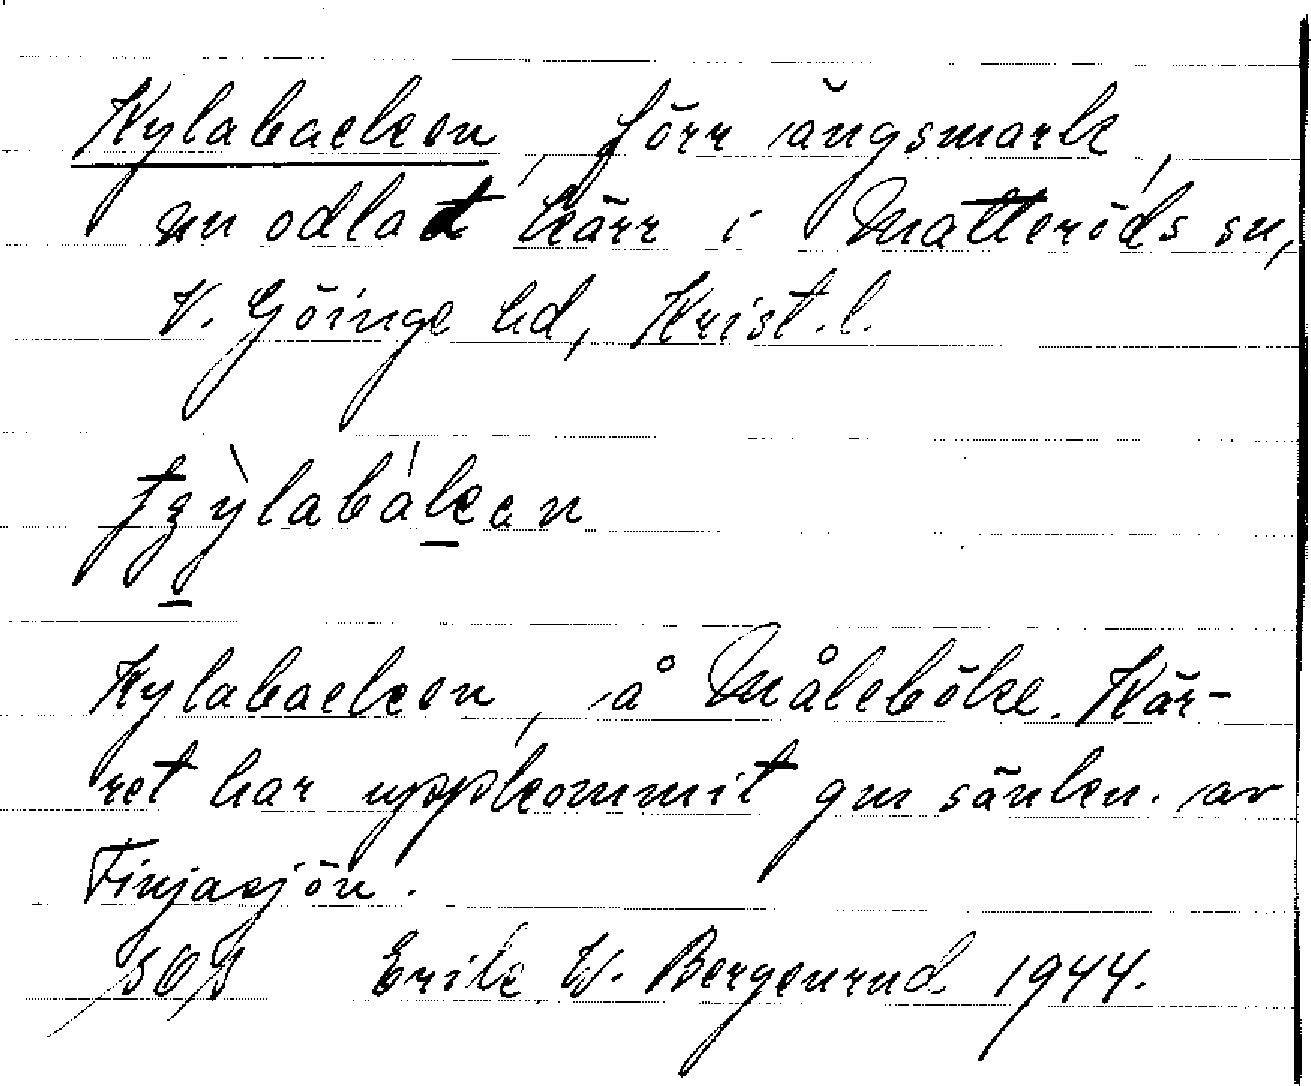 Kylabacken, förr ängsmark,
nu odlat kärr i Matteröds sn,
V. Göinge hd, Krist. l.
Kylabacken, å Måleböke. Kär-
ret har uppkommit gm sänkn. av
Finjasjön.
Erik W. Bergenrud 1944.